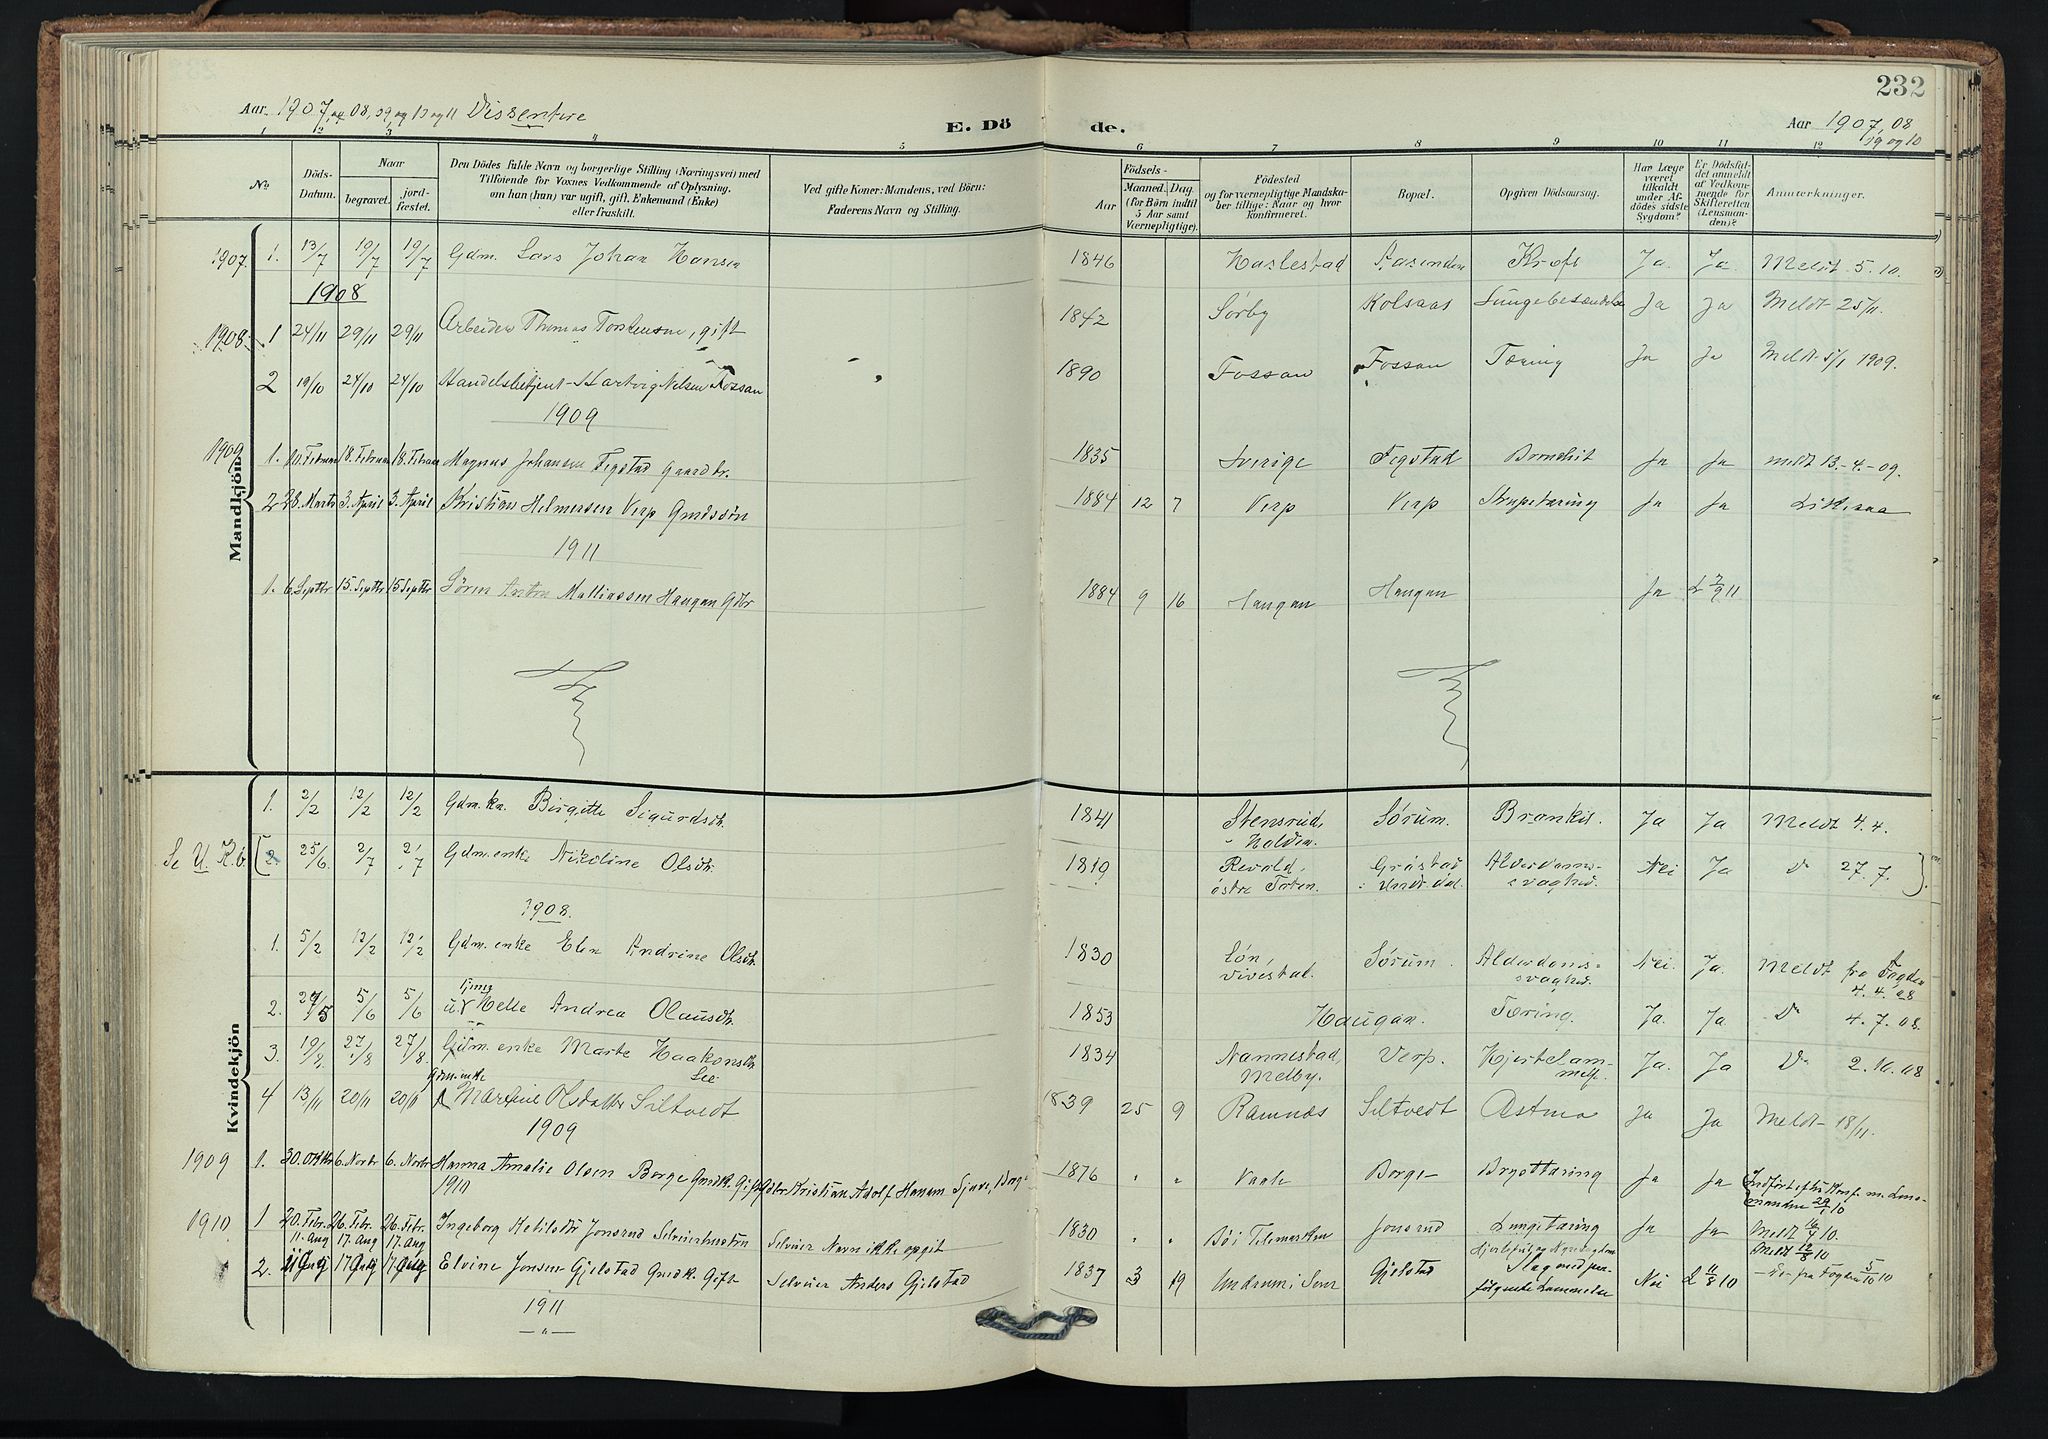 232
Aar 1907, og 08, 09, og 10 og 11 Dissentere
E. Dö de.
Aar 1907, 08
09 og 10
1 2 3 4 5 6 7 8 9 10 11 12
No.
Döds-
Datum.
Naar
begravet.
jord-
fæstet.
Den Dödes fulde Navn og borgerlige Stilling (Næringsvei) med
Tilföiende for Voxnes Vedkommende af Oplysning,
om han (hun) var ugift, gift, Enkemand (Enke)
eller fraskilt.
Ved gifte Koner: Mandens, ved Börn:
Faderens Navn og Stilling.
Födsels-
Aar
Maaned. Dag.
(for Börn indtil
5 Aar samt
Værnepligtige).
Födested
og for værnepligtige Mandska-
ber tillige: Naar og hvor
konfirmeret.
Bopæl.
Opgiven Dödsaarsag.
Har Læge
været
tilkaldt
under Af-
dödes sidste
Sygdom?
Er Dödsfal-
det anmeldt
af Vedkom-
mende for
Skifteretten
(Lensman-
den)?
Anmærkninger.
Mandkjön
1907. 1. 13/7 19/7 19/7 Gdm. Lars Johan Hansen 1846 Haslestad Aasenden Kræft Ja. Ja. Meldt 5.10.
1908
1908. 1 24/11 29/11 29/11 Arbeider Thomas Torstensen, gift 1842 Sörby Kolsaas Lungebetændelse Ja Ja Meldt 25/11.
2 19/10 24/10 24/10 Handelsbetjent Hartvig Nilsen Fossan 1890 Fossan Fossan Tæring Ja Ja Meldt 5/1 1909.
1909
1909 1. 11. Februar 18. Februar 18. Februar Magnus Johansen Fegstad Gaardbr. 1835 Sverige Fegstad Bronchit Ja Ja meldt 13.-4.-09.
2 28. Marts 3. April 3. April Kristian Helmersen Verp Grdssön 1884 12 7 Verp Verp Strupetæring Ja Ja
1911
1. 6. Septbr 15. Septbr 15 Septbr Sören Anton Mathiassen Haugan Gdbr 1884 9 16 Haugan Haugan Ja L 7/9 11
Kvindekjön
1. 2/2 12/2 12/2 Gdm.kn. Birgitte Sigurdsdtr. 1841 Stensrud, Holden. Sörum. Bronkit. Ja Ja Meldt 4.4.
Se U. K.b. 2. 25/6 2/7 2/7 Gdm.enke Nikoline Olsdtr. 1819 Revold, östre Toten. Gråstad i Undrdal. Alderdoms-
svaghed. Nei Ja Do 27.7.
1908.
1. 5/2 12/2 12/2 Gdm.enke Elen Andrine Olsdtr. 1830 Lön, Vivestad. Sörum. Alderdoms-
svaghed. Nei. Ja. Meldt fra Fogden
4.4.08
2. 29/5 5/6 5/6 Helle Andrea Olausdtr. 1853 Haugan. Tæring. Ja. Ja. Do 4.7.08.
3. 19/8 27/8 27/8 Gdm. enke Marte Haakonsdtr. 1834 Nannestad, Melby. Verp. Hjertelam-
melse. Ja. Ja Do 2.10.08
Gdm.enke
4 13/11 20/11 20/11 Maren Olsdatter Siltvedt 1839 25 9 Ramnæs Siltvedt Astma Ja Ja Meldt 18/11.
1909
1909 1. 30. Oktbr 6. Novbr 6. Novbr Hanna Amalie Olsen Borge Grdk. Gift Gdbr Kristian Adolf Hansen 1876 " " Vaale Borge Brysttæring Ja Ja
1910
1910. 1 20. Febr. 26. Febr. 26. Febr. Ingeborg Ketilsdtr Jonsrud Selveierhustru Selveier Navn ikke opgit 1830 " " Böi Telemarken Jonsrud Lungetæring Ja Ja Meldt 16/4 10.
11. Aug 17. Aug 17. Aug Meldt 12/8 10
2. 11 Aug 17 Aug 17. Aug Elvine Jonsen Gjelstad Grdk. Gift Selveier Anders Gjelstad 1837 3 19 Undrum i Sem Gjelstad Slag med paa-
fölgende Lammelse Nei L 11/8 10 – Do – fra Fogden 5/10 10
1911
— " —